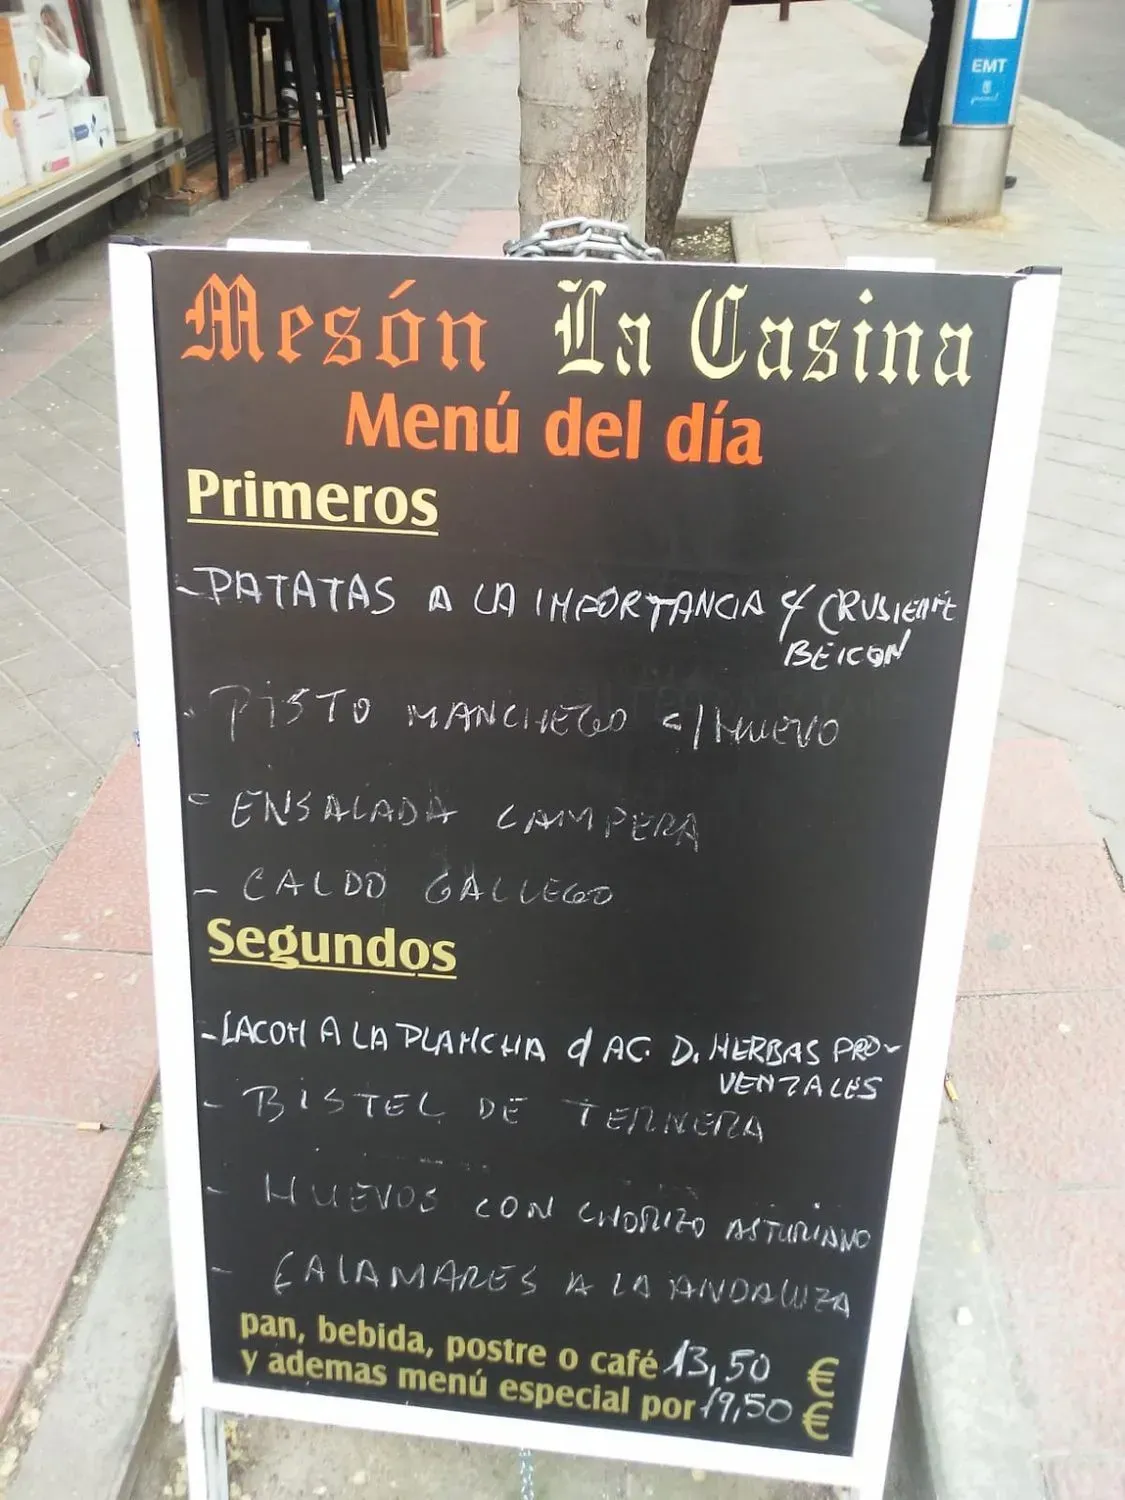 EMT
Mesón La Casina
Menú del día
Primeros
- PATATAS A LA IMPORTANCIA C/ CRUSIENTE
BEICON
- PISTO MANCHEGO C/HUEVO
- ENSALADA CAMPERA
- CALDO GALLEGO
Segundos
- LACON A LA PLANCHA C/ AC. D. HERBAS PRO-
VENZALES
- BISTEC DE TERNERA
- HUEVOS CON CHORIZO ASTURIANO
- CALAMARES A LA ANDALUZA
pan, bebida, postre o café 13,50 €
y ademas menú especial por 19,50 €